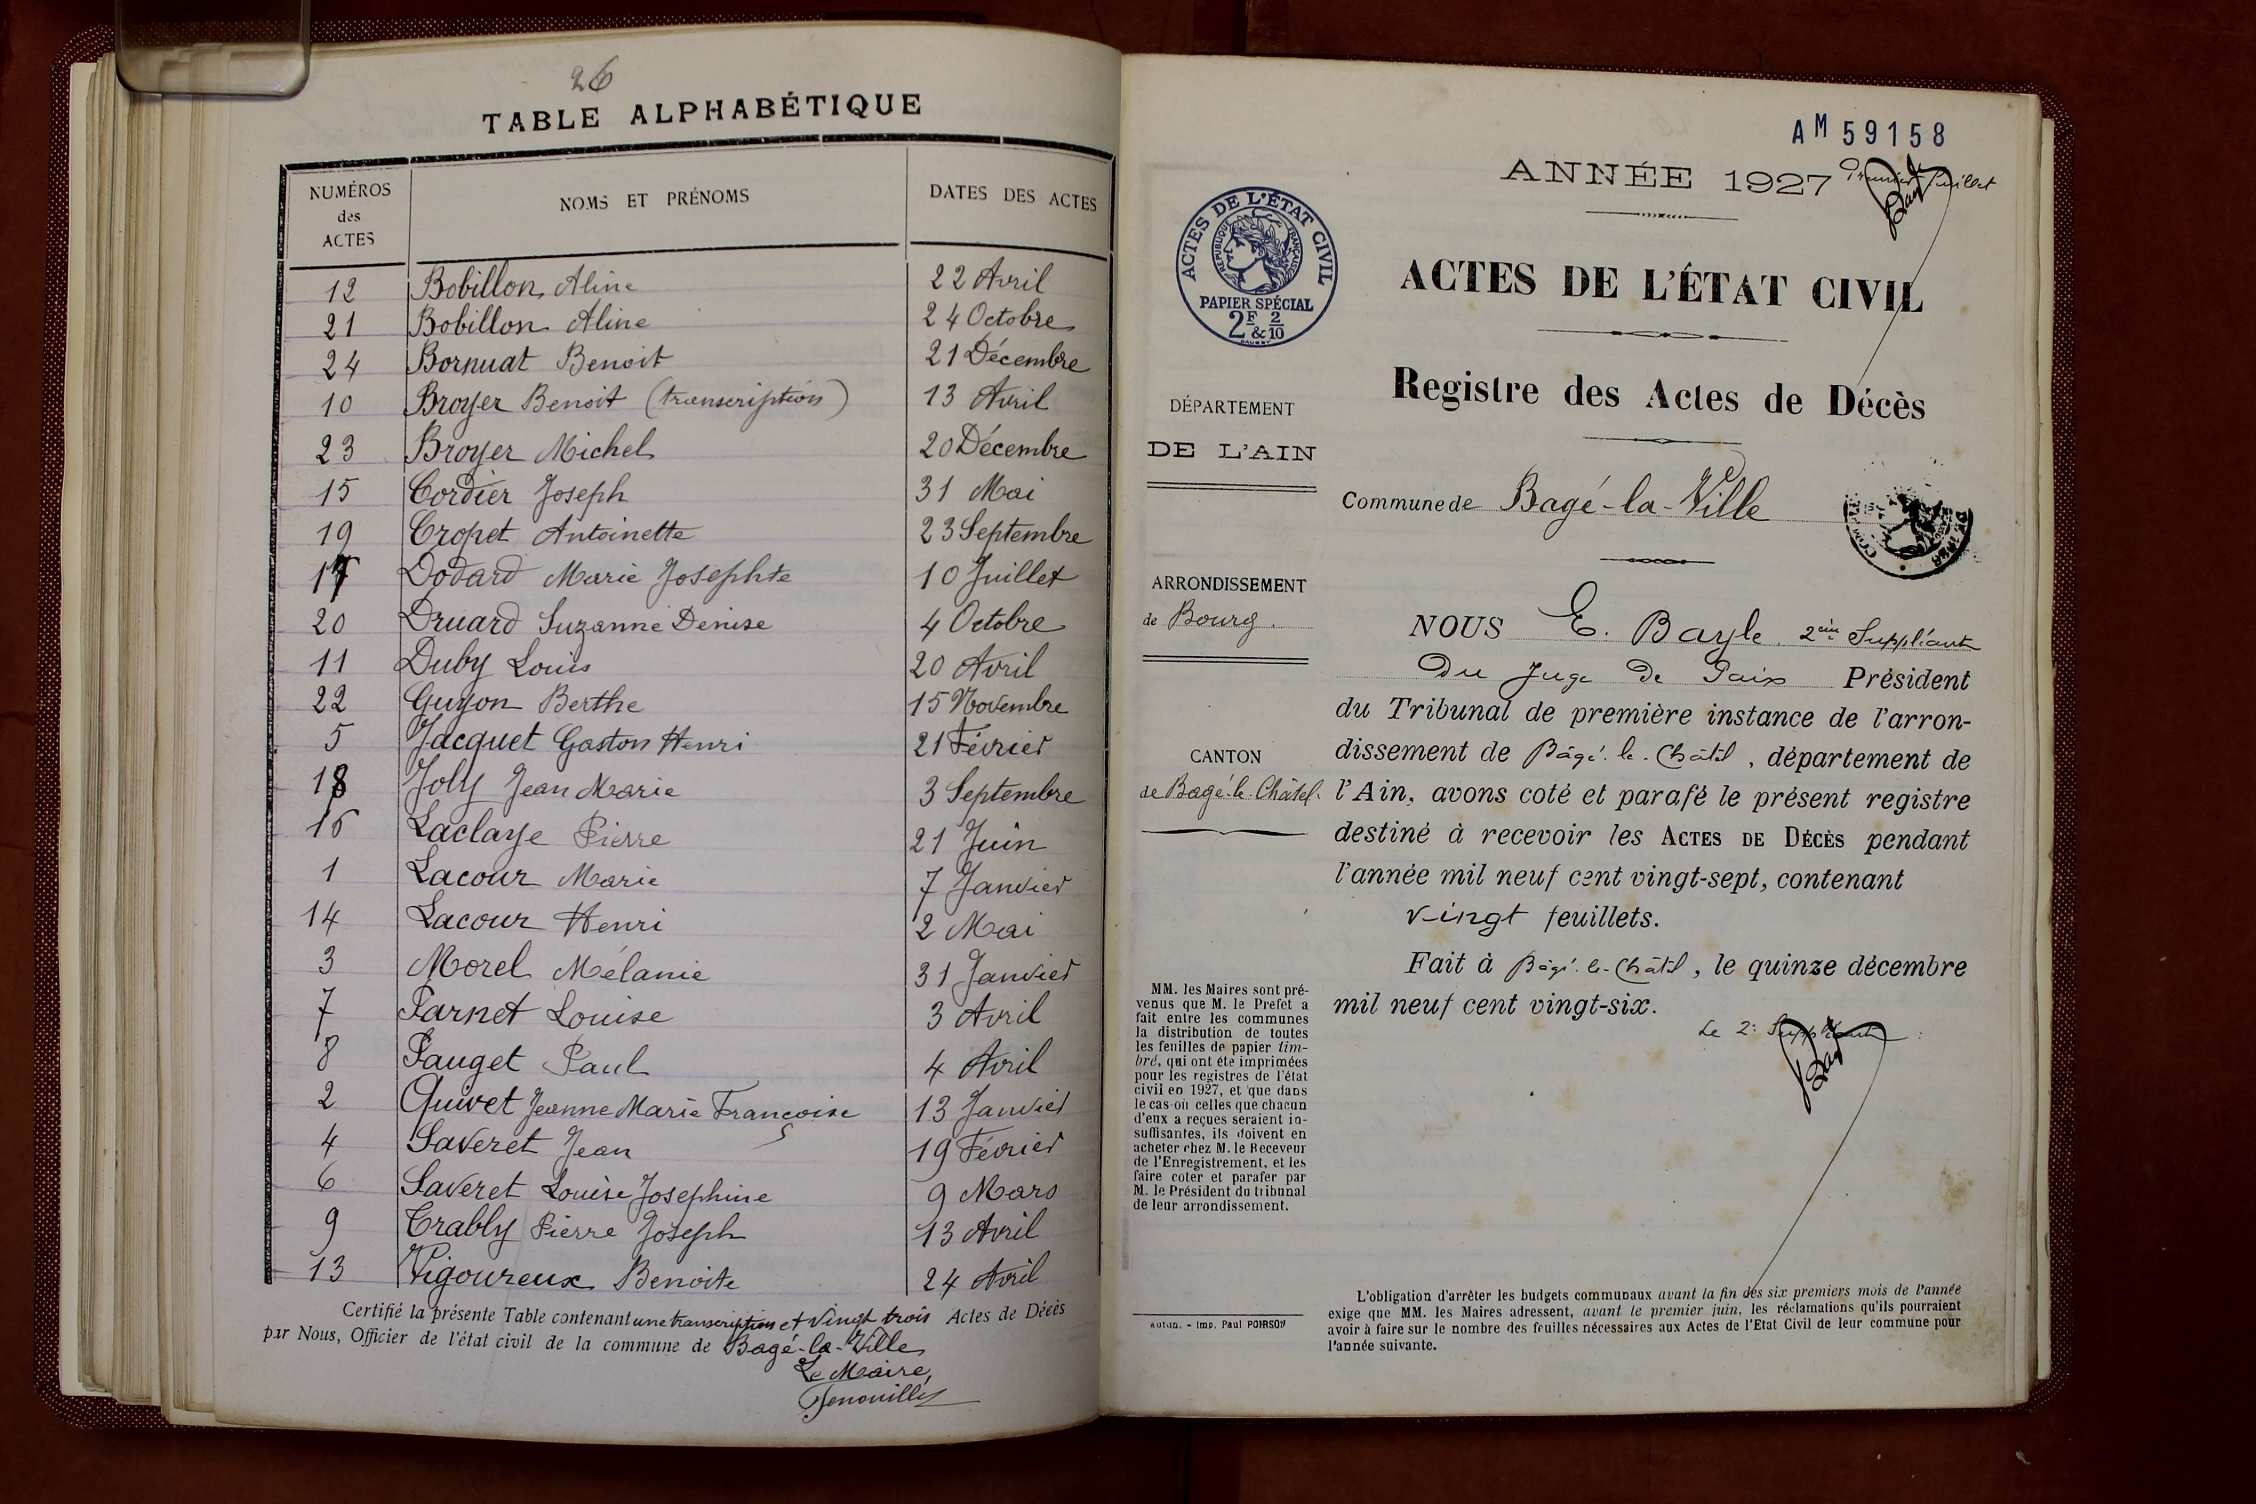 26
TABLE ALPHABÉTIQUE
NUMÉROS des ACTES
NOMS ET PRÉNOMS
DATES DES ACTES
12 Bobillon Aline 22 Avril
21 Bobillon Aline 24 Octobre
24 Bornuat Benoit 21 Décembre
10 Broyer Benoit (transcription) 13 Avril
23 Broyer Michel 20 Décembre
15 Cordier Joseph 31 Mai
19 Cropet Antoinette 23 Septembre
17 Dodard Marie Josephte 10 Juillet
20 Druard Suzanne Denise 4 Octobre
11 Duby Louis 20 Avril
22 Guyon Berthe 15 Novembre
5 Jacquet Gaston Henri 21 Février
18 Joly Jean Marie 3 Septembre
16 Laclaye Pierre 21 Juin
1 Lacour Marie 7 Janvier
14 Lacour Henri 2 Mai
3 Morel Mélanie 31 Janvier
7 Parnet Louise 3 Avril
8 Pauget Paul 4 Avril
2 Quivet Jeanne Marie Françoise 13 Janvier
4 Saveret Jean 19 Février
6 Saveret Louise Josephine 9 Mars
9 Trably Pierre Joseph 13 Avril
13 Vigoureux Benoite 24 Avril
Certifié la présente Table contenant une transcription et vingt trois Actes de Décès
par Nous, Officier de l'état civil de la commune de Bagé-la-Ville
Le Maire,
AM 59158
ANNÉE 1927
Premier feuillet
ACTES DE L'ÉTAT CIVIL
RÉPUBLIQUE FRANÇAISE
PAPIER SPÉCIAL
2F & 2/10
ACTES DE L'ÉTAT CIVIL
Registre des Actes de Décès
DÉPARTEMENT
DE L'AIN
Commune de Bagé-la-Ville
ARRONDISSEMENT
de Bourg.
CANTON
de Bagé-le-Châtel.
NOUS E. Bayle 2ème Suppléant
du Juge de Paix Président
du Tribunal de première instance de l'arron-
dissement de Bâgé-le-Châtel, département de
l'Ain, avons coté et parafé le présent registre
destiné à recevoir les ACTES DE DÉCÈS pendant
l'année mil neuf cent vingt-sept, contenant
vingt feuillets.
Fait à Bâgé-le-Châtel, le quinze décembre
mil neuf cent vingt-six.
Le 2e Suppléant
MM. les Maires sont pré-
venus que M. le Prefet a
fait entre les communes
la distribution de toutes
les feuilles de papier tim-
bré, qui ont été imprimées
pour les registres de l'état
civil en 1927, et que dans
le cas où celles que chacun
d'eux a reçues seraient in-
suffisantes, ils doivent en
acheter chez M. le Receveur
de l'Enregistrement, et les
faire coter et parafer par
M. le Président du tribunal
de leur arrondissement.
Autun. - Imp. Paul POIRSON
L'obligation d'arrêter les budgets communaux avant la fin des six premiers mois de l'année
exige que MM. les Maires adressent, avant le premier juin, les réclamations qu'ils pourraient
avoir à faire sur le nombre des feuilles nécessaires aux Actes de l'Etat Civil de leur commune pour
l'année suivante.